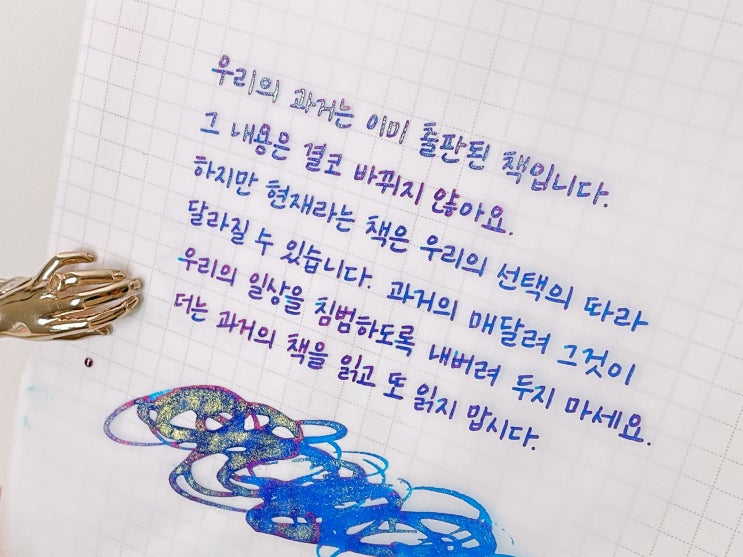 우리의 과거는 이미 출판된 책입니다.
그 내용은 결코 바뀌지 않아요.
하지만 현재라는 책은 우리의 선택의 따라
달라질 수 있습니다. 과거의 매달려 그것이
우리의 일상을 침범하도록 내버려 두지 마세요.
더는 과거의 책을 읽고 또 읽지 맙시다.